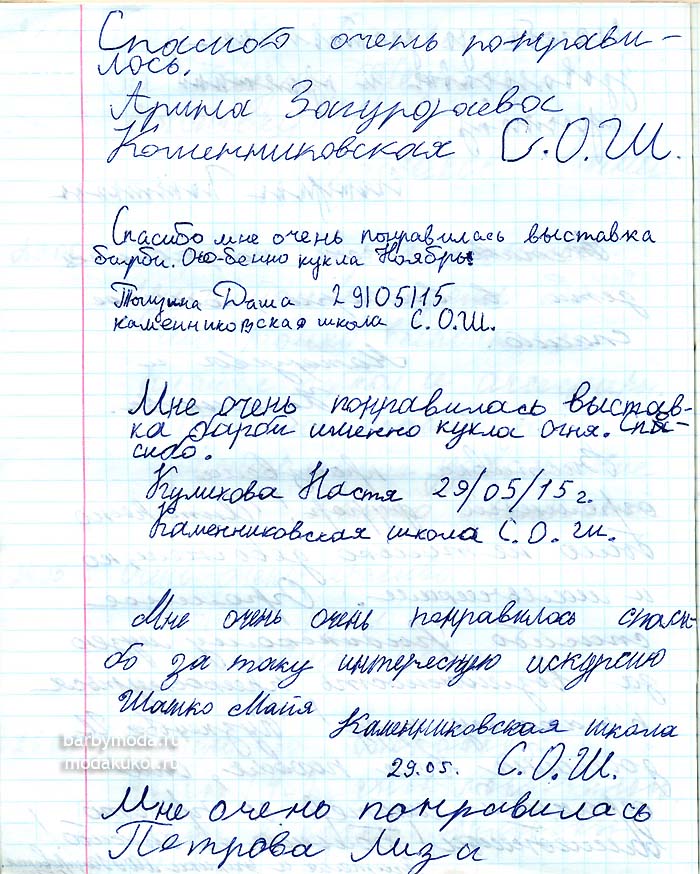 Спасибо очень понрави-
лось.
Арина
Каменниковская С.О.Ш.
Спасибо мне очень понравилась выставка
барби. Осо-бенно кукла Ноябрь!
Даша 29/05/15
каменниковская школа С.О.Ш.
Мне очень понравилась выстав-
ка барби именно кукла огня. Спа-
сибо.
Куликова Настя 29/05/15 г.
Каменниковская школа С.О.Ш.
Мне очень очень понравилось спаси-
бо за таку интересную искурсию
Шатко Майя
Каменниковская школа
29.05. С.О.Ш.
barbymoda.ru
modakukol.ru
Мне очено понравилась
Петрова Лиза